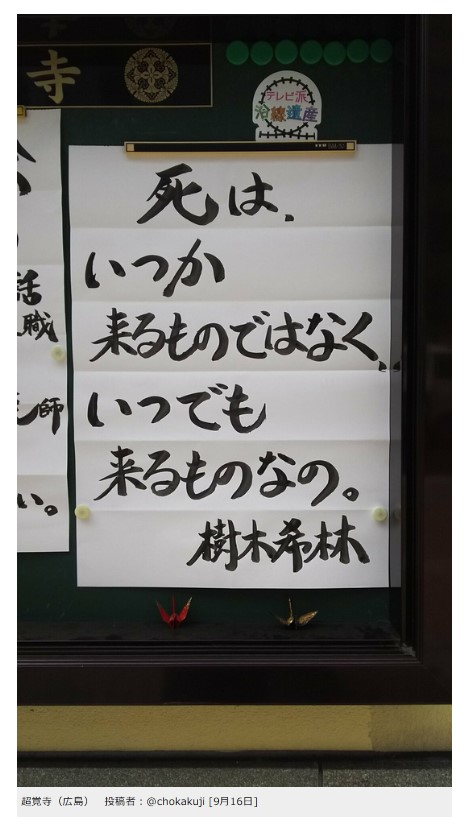 寺
テレビ派
沿線遺産
死は、
いつか
来るものではなく、
いつでも
来るものなの。
樹木希林
話
職
師
い。
超覚寺（広島）　投稿者：@chokakuji [9月16日]